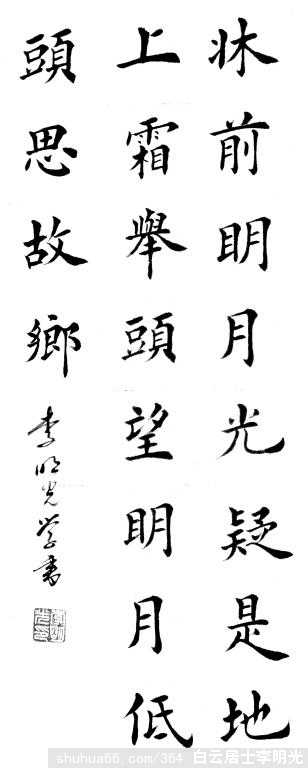 牀前明月光疑是地
上霜舉頭望明月低
頭思故鄉
李明光学书
shuhua66.com/364 白云居士李明光